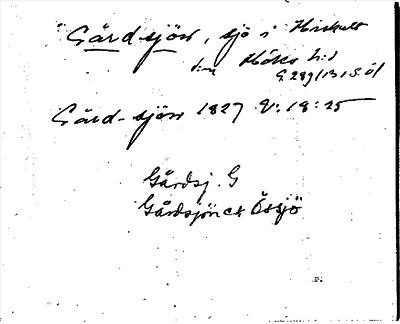 Gårdsjön, sjö i Horskult
Höks h:d
G.289/13 i S. öl
Gård-sjön 1827 V: 18:25
Gårdsj. G
Gårdsjön ek Össjö